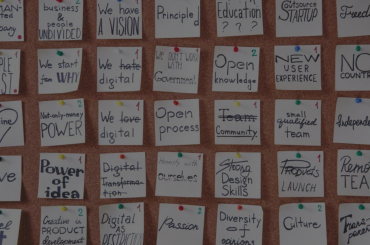 business
& people
UNDIVIDED
We have
A VISION
Principle
Education
? ? ?
Outsource
STARTUP
We start
from WHY
We hate
digital
WE DON'T WORK
WITH
Government
Open
knowledge
NEW
USER
EXPERIENCE
NO
Not-only-money
POWER
We love
digital
Open
process
Team
Community
small
qualified
team
Power
of idea
Digital
Transformation
ourselves
Strong
Design
Skills
LAUNCH
TEAM
Creative in
PRODUCT
development
Digital
AS
Passion
Diversity
of
Culture